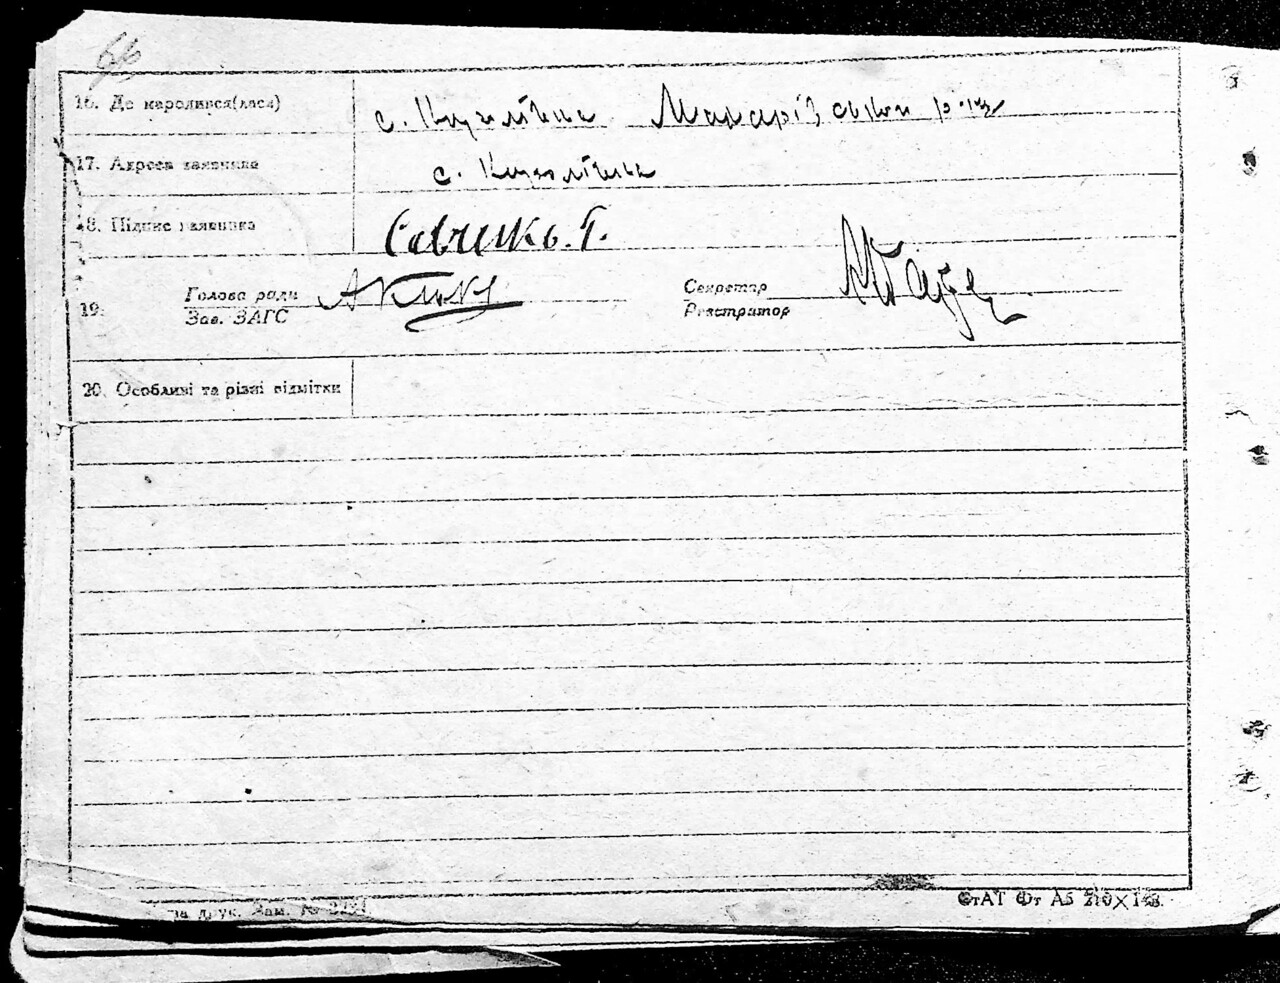 66
16. Де народився(лася) с. Макарівськи р-н
17. Адреса заявника с.
18. Підпис заявника Савченко. Г.
Голова ради Секретар
19.
Зав. ЗАГС Реєстратор
20. Особливі та різні відмітки
друк. Зам. №
СтАТ Фт А5 210×148.